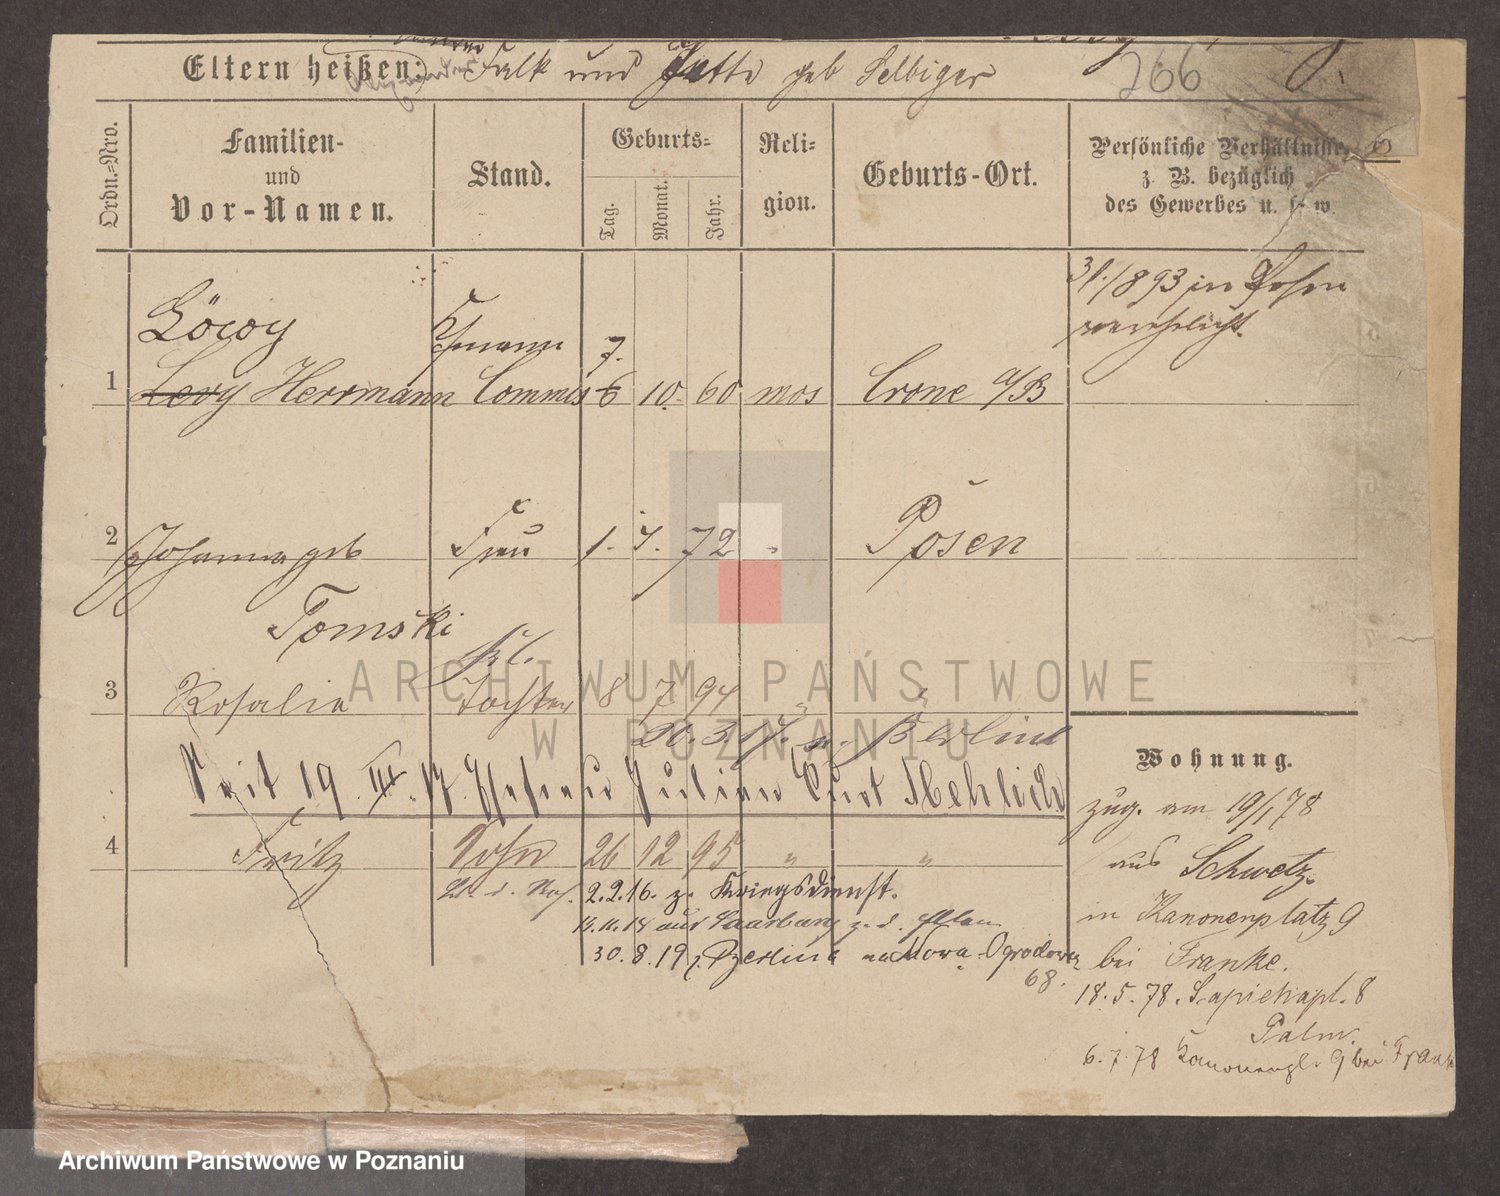 Eltern heißen: Falk und Jette geb Selbiger
266
Ordn.=Nro.
Familien-
und
Vor-Namen.
Stand.
Geburts=
Tag.
Monat.
Jahr.
Reli=
gion.
Geburts-Ort.
Persönliche Verhältnisse,
z. B. bezüglich
des Gewerbes u. s. w.
31./893 in Posen
verehelicht.
Löwy
Kfmann 7.
1 Levy Herrmann Commis 6 10. 60 mos Crone a/B
2 Johanna geb Frau 1. 7. 72 " Posen
Tomski
3 Rosalie Tochter 8 7 94 " "
20. 3. 17. n. Berlin
Seit 19. III. 17. Ehefrau Julian Curt Mehlich
4 Fritz Sohn 26 12 95 " "
2.2.16. z. Kriegsdienst.
14.11.18 aus Saarburg z. d. Eltern
30. 8. 19 z. Berlin nach Nowa-Ogrodowa
68.
Wohnung.
zug. am 19/1 78
aus Schwetz.
in Kanonenplatz 9
bei Franke.
18. 5. 78. Sapiehapl. 8
Palm.
6. 7. 78 Kanonenpl. 9 bei Frank
ARCHIWUM PAŃSTWOWE
W POZNANIU
Archiwum Państwowe w Poznaniu